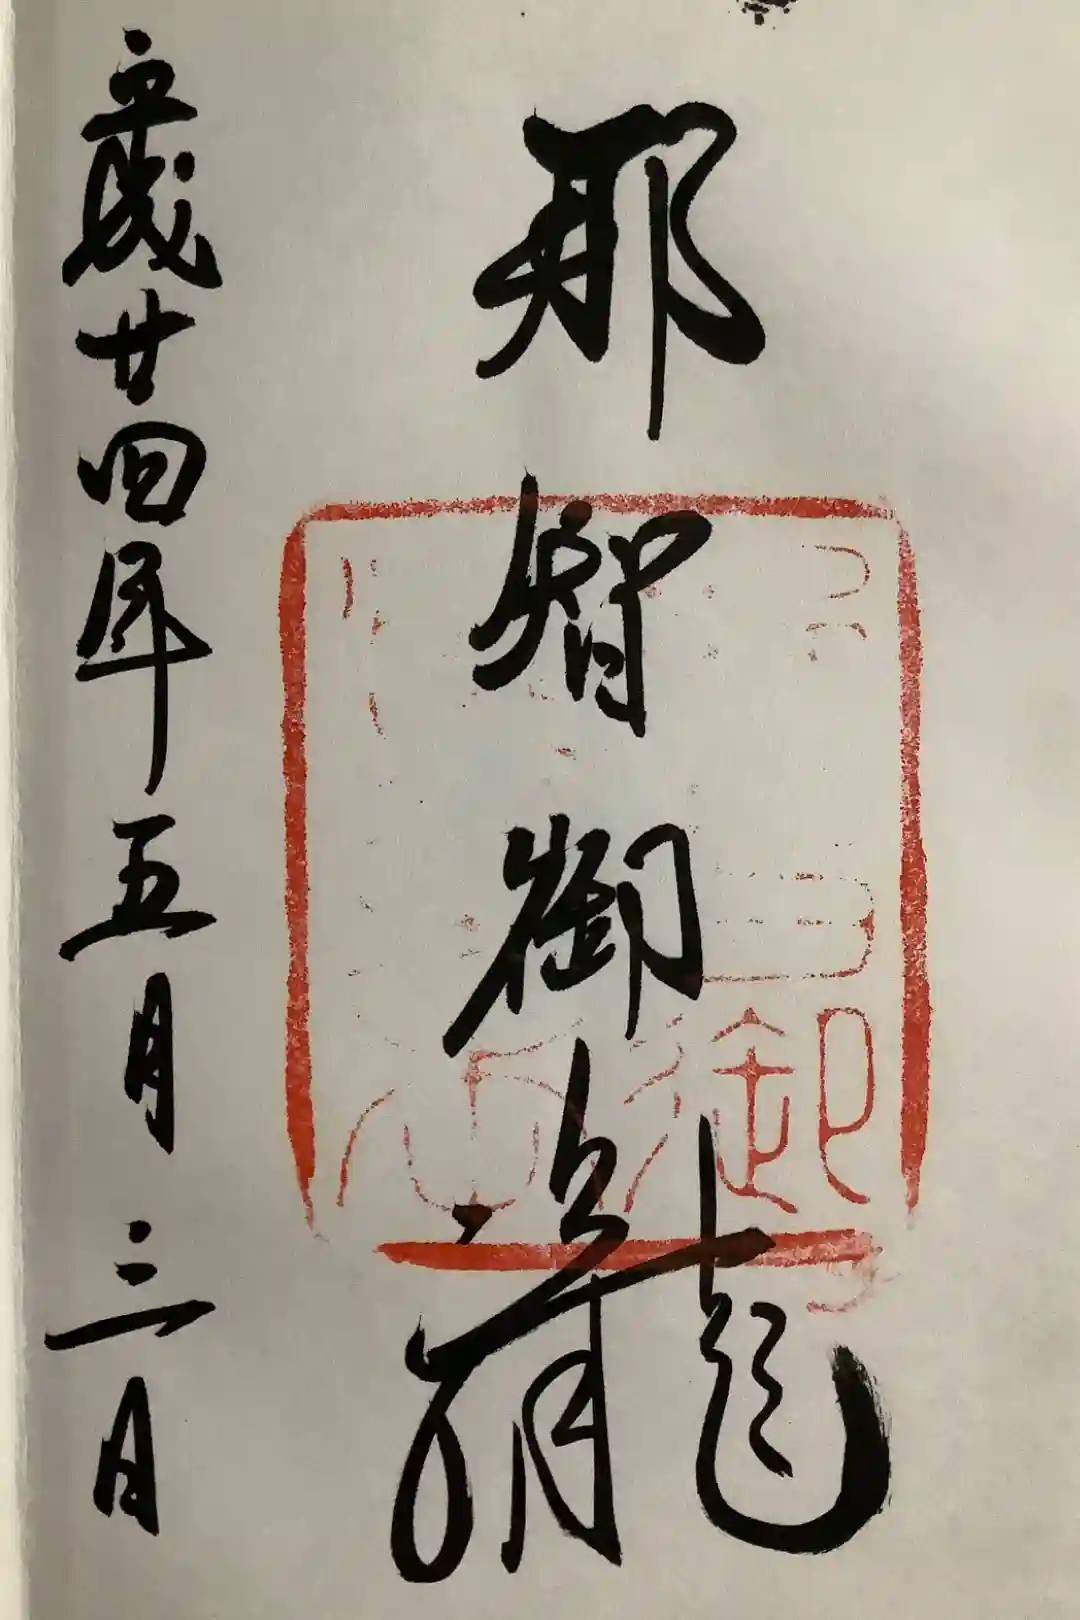 那智御瀧
平成廿四年五月三日